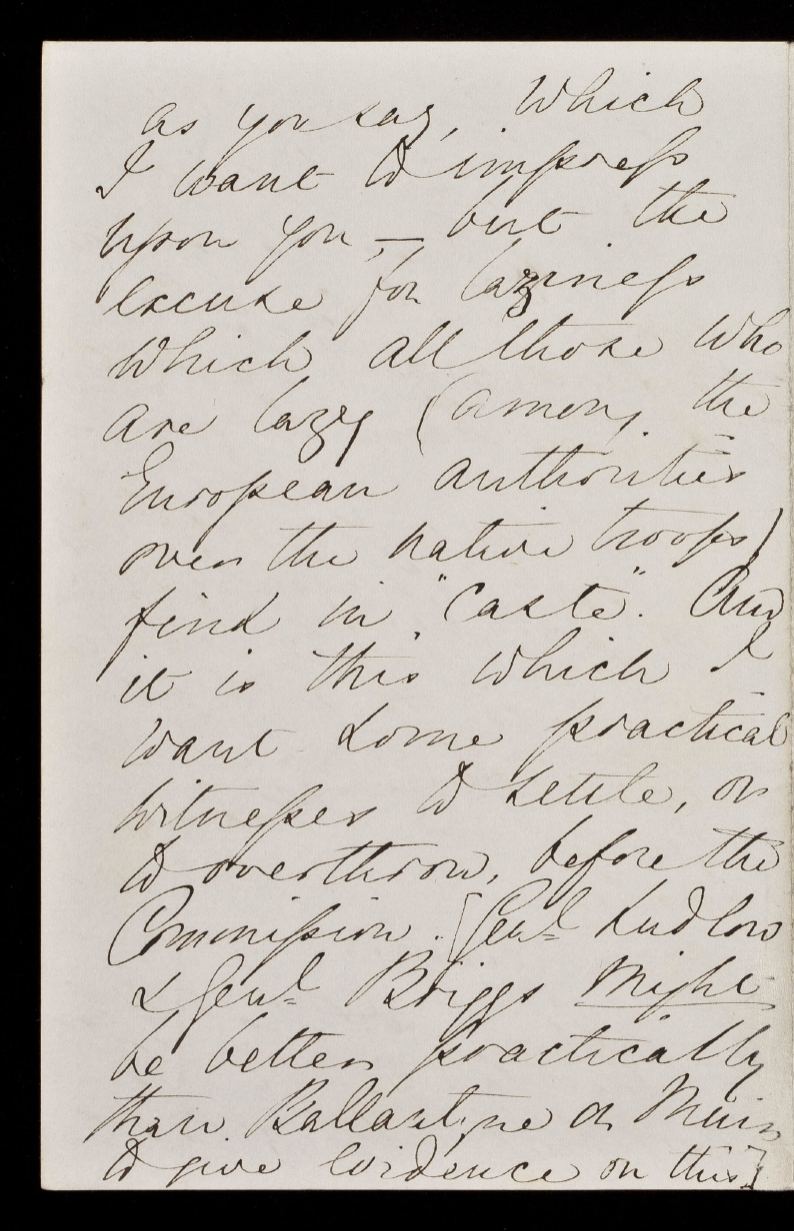 as you say, which
I want to impress
upon you, — but the
excuse for laziness
which all those who
are lazy (among the
European authorities
over the native troops)
find in "Caste". And
it is this which I
want some practical
witnesses to settle, or
to overthrow, before the
Commission. [Genl Ludlow
& Genl Briggs might
be better practically
than Ballantyne or Muir
to give evidence on this.]